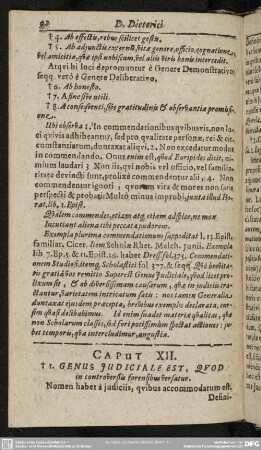 98 D. Dieterici
† 4. Ab effectis, rebus scilicet gestis.
† 5. Ab adjunctis externis, vitæ genere, officio, cognatione,
vel amicitia, quæ ipsi nobiscum, vel aliis viris bonis intercedit.
Atqvi hi loci depromuntur è Genere Demonstrativo;
seqq. verò è Genere Deliberativo.
† 6. Ab honesto.
† 7. A fine sive utili.
† 8. A consequenti, sive gratitudinis & observantiæ promissione.
Ubi observa 1. In commendationibus qvibusvis, non loci
qvivis adhibeantur, sed pro qvalitate personæ, rei & circumstantiarum,
duntaxat aliqvi. 2. Non excedatur modus
in commendando. Onus enim est, quod Euripides dicit, nimium
laudari 3 Non ii, qvi nobis vel officio, vel familiaritate
devincti sunt, prolixè commendentur alii, 4. Non
commendentur ignoti, quorum vita & mores non satis
perspecti & probati: Mulcò minus improbi, juxta illud Horat.
lib. 1. Epist.
Qualem commendes, etiam atq; etiam adspice, ne mox
Incutiant aliena tibi peccata pudorem.
Exempla plurima commendationum suppeditat l. 13. Epist.
familiar. Cicer. Item Scholæ Rhet. Melch. Junii. Exempla
lib. 7. Ep. 5. & 11. Epist. 15. habet Dress. fol. 375. Commendationem
Studiosi item q; Scholastici fol 377. & seqq.
prolixum
sit, & ob diversissimam causarum, quæ in judiciis tractantur,
varietatem intricatum satis: nos tamen Generaliora
duntaxat ejusdem præcepta, brevibus exemplis declarata, carsim
quasi delibabimus. Id enim suadet materiæ qvalitas, quæ
non Scholarum classes, sed fori potissimùm spectat actiones: jubet
temporis, quo intercludimur, angustia.
CAPUT XII.
† 1. GENUS JUDICIALE EST, QVOD
in controversiis forensibus versatur.
Nomen habet à judiciis, qvibus accommodatum est.
Defini-
DFG